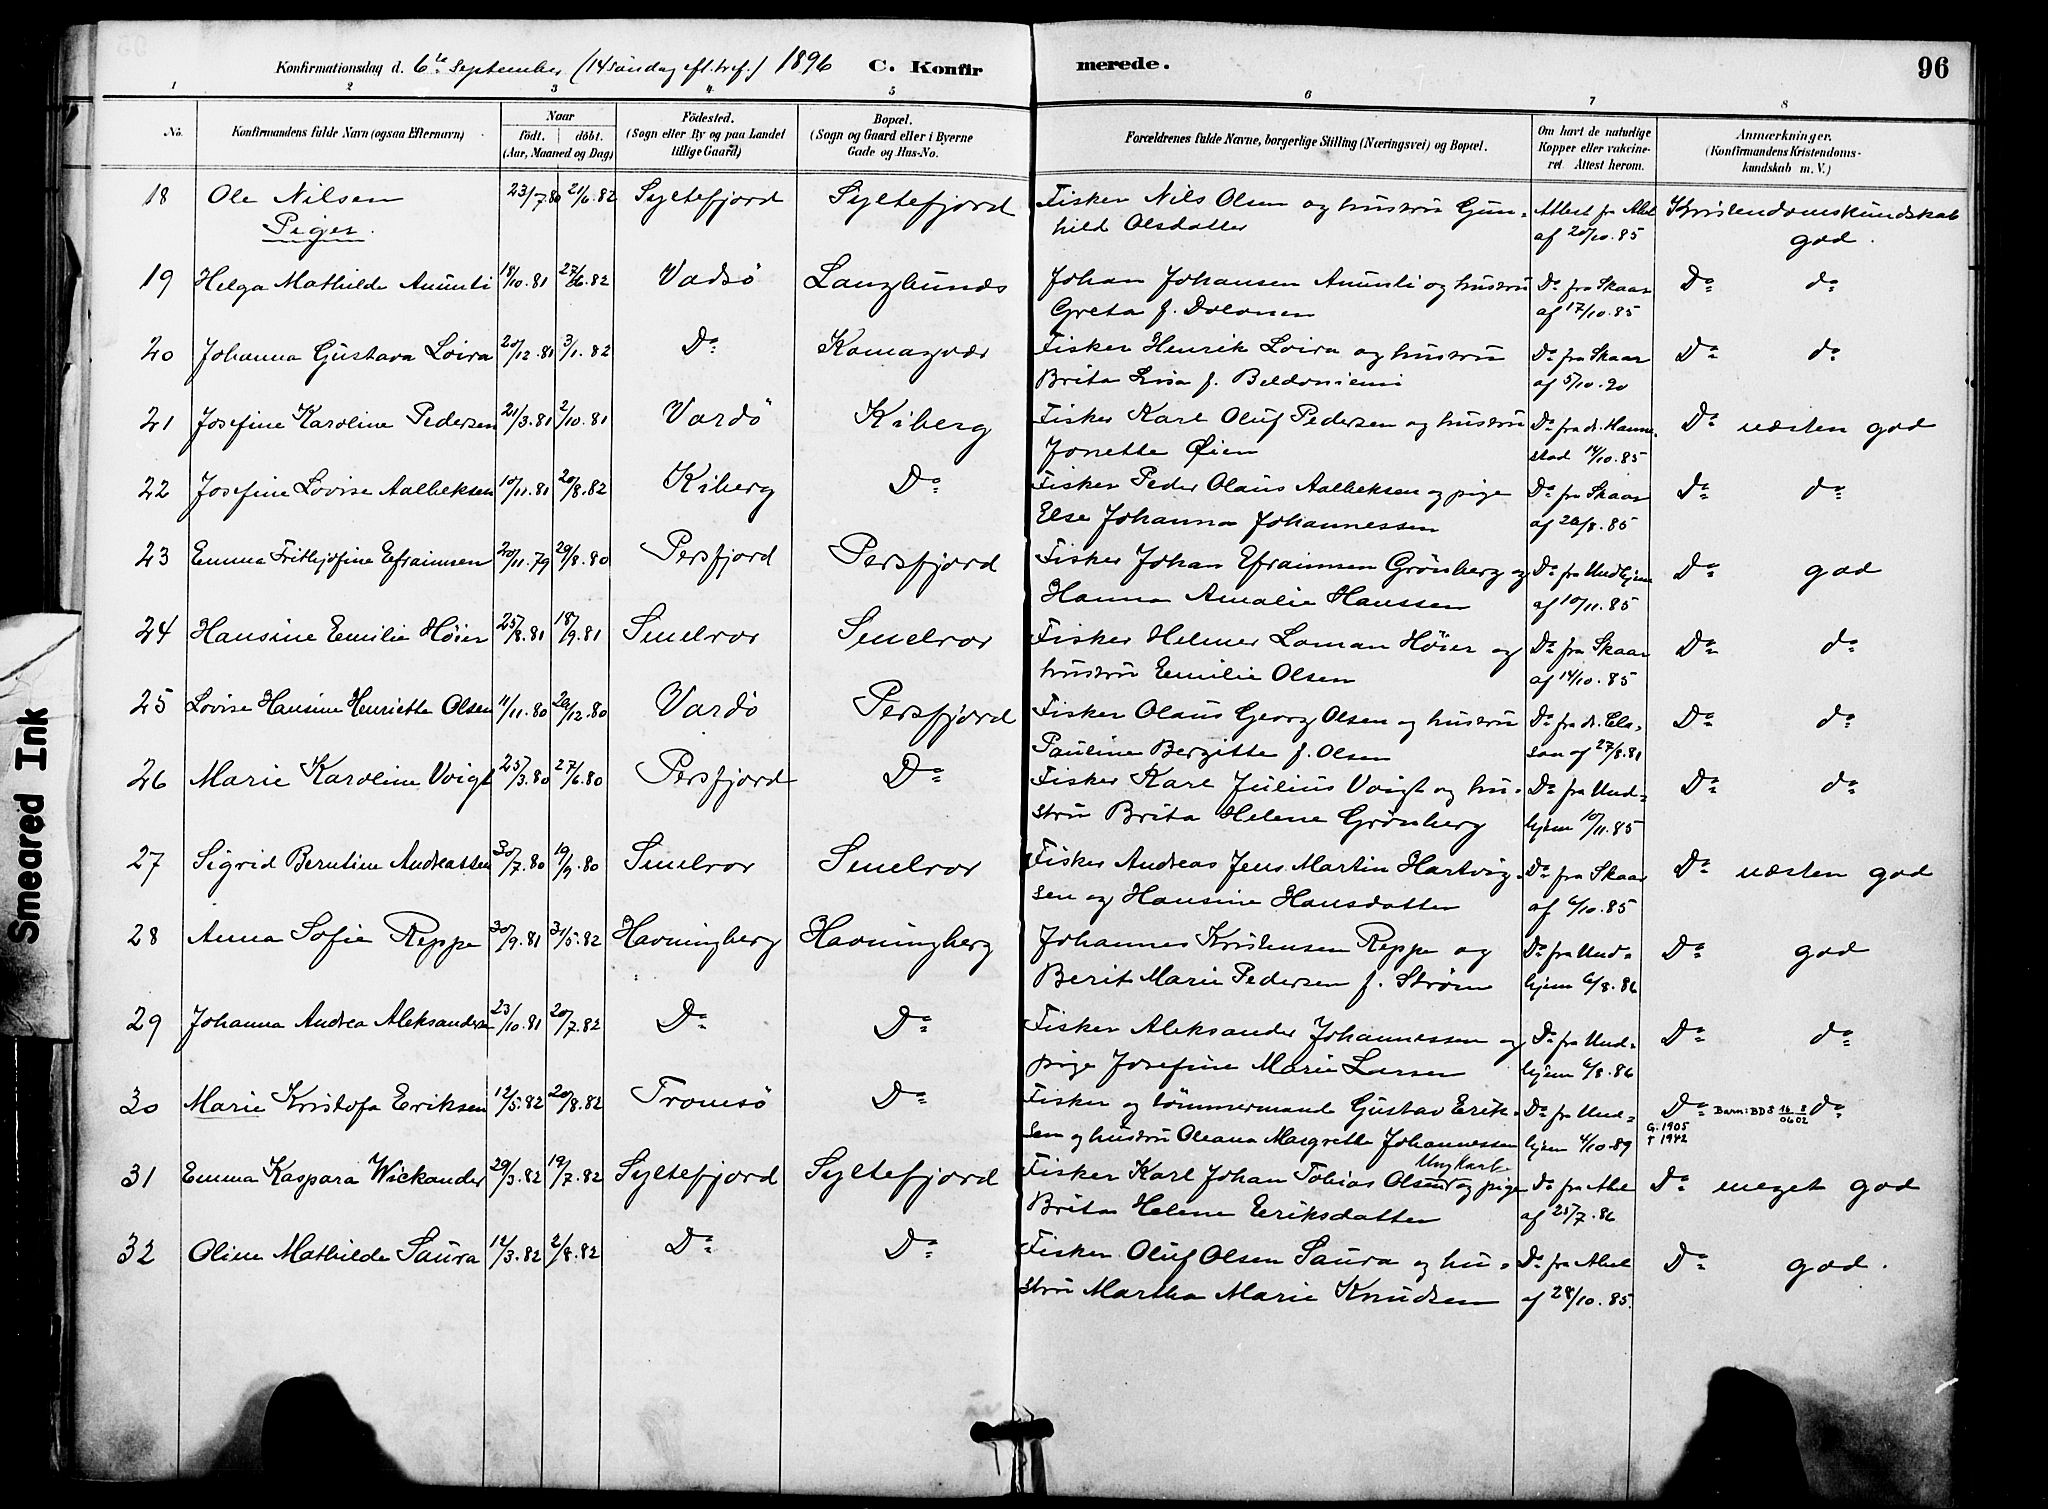 Konfirmationsdag d. 6te September (14 søndag eft. tref.) 1896 C. Konfirmerede. 96
1 2 3 4 5 6 7 8
No. Konfirmandens fulde Navn (ogsaa Efternavn) Naar født. døbt. (Aar, Maaned og Dag) Fødested. (Sogn eller By og paa Landet tillige Gaard) Bopæl. (Sogn og Gaard eller i Byerne Gade og Hus-No. Forældrenes fulde Navne, borgerlige Stilling (Næringsvei) og Bopæl. Om havt de naturlige Kopper eller vakcineret Attest herom. Anmærkninger. (Konfirmandens Kristendomskundskab m. V.)
18 Ole Nilsen 23/7.80 21/6.82 Syltefjord Syltefjord Fisker Nils Olsen og hustru Gun- Attest fra Abel Kristendomskundskab
hild Olsdatter af 20/10.85 god.
Piger.
19 Helga Mathilde Anunti 18/10.81 27/6.82 Vadsö Langbunds Johan Johansen Anunti og hustru Do fra Skaar Do do
Greta f. af 17/10.85
20 Johanna Gustava Loira 20/12.81 3/1.82 Do Komagvær Fisker Henrik Loira og hustru Do fra Skaar Do do
Brita Lisa f. af 5/10.90
21 Josefine Karoline Pedersen 21/3.81 2/10.81 Vardö Kiberg Fisker Karl Oluf Pedersen og hustru Do fra dr. Hanne- Do næsten god
Jonette Øien stad 14/10.85
22 Josefine Lovise Aalbeksen 10/11.81 20/8.82 Kiberg Do Fisker Peder Olaus Aalbeksen og pige Do fra Skaar Do do
Else Johanna Johannessen af 20/8.85
23 Emma Frithjofine Efraimsen 20/11.79 29/8.80 Persfjord Persfjord Fisker Johan Efraimsen Grönberg og Do fra Undhjem Do god
Hanna Amalie Hanssen af 10/11.85
24 Hansine Emilie Höier 25/8.81 18/9.81 Smelror Smelror Fisker Helmer Loman Höier og Do fra Skaar Do do
hustru Emilie Olsen af 14/10.85
25 Lovise Hansine Henriette Olsen 11/11.80 20/12.80 Vardö Persfjord Fisker Olaus Georg Olsen og hustru Do fra dr. Do do
Pauline Bergitte f. Olsen af 27/8.81
26 Marie Karoline Voigt 25/3.80 27/6.80 Persfjord Do Fisker Karl Julius Voigt og hu- Do fra Und- Do do
stru Brita Helene Grönberg hjem 10/11.85
27 Sigrid Berntine Andreassen 30/7.80 19/9.80 Smelror Smelror Fisker Andreas Jens Martin Hartvig- Do fra Skaar Do næsten god
sen og Hansine Hansdatter af 6/10.85
28 Anna Sofie Reppe 30/9.81 31/5.82 Havningberg Havningberg Johannes Kristensen Reppe og Do fra Und- Do god
Berit Marie Pedersen f. Ström hjem 6/8.86
29 Johanna Andrea Aleksandersen 23/10.81 20/7.82 Do Do Fisker Aleksander Johannessen og Do fra Und- Do do
pige Josefine Marie Larsen hjem 6/8.86
30 Marie Kristofa Eriksen 12/5.82 20/8.82 Tromsö Do Fisker og tömmermand Gustav Erik- Do fra Und- Do Barn: BDS 16/06 8/02 do
sen og hustru Oleana Margrethe Johannessen hjem 4/10.89 G. 1905
† 1942
31 Emma Kaspara Wickander 29/3.82 19/7.82 Syltefjord Syltefjord Fisker Karl Johan Tobias Olsen Ungkarl og pige Do fra Abel Do meget god
Brita Helene Eriksdatter af 25/7.86
32 Oline Mathilde Saura 12/3.82 2/8.82 Do Do Fisker Oluf Olsen Saura og hu- Do fra Abel Do god.
stru Martha Marie Knudsen af 28/10.85.
Smeared Ink